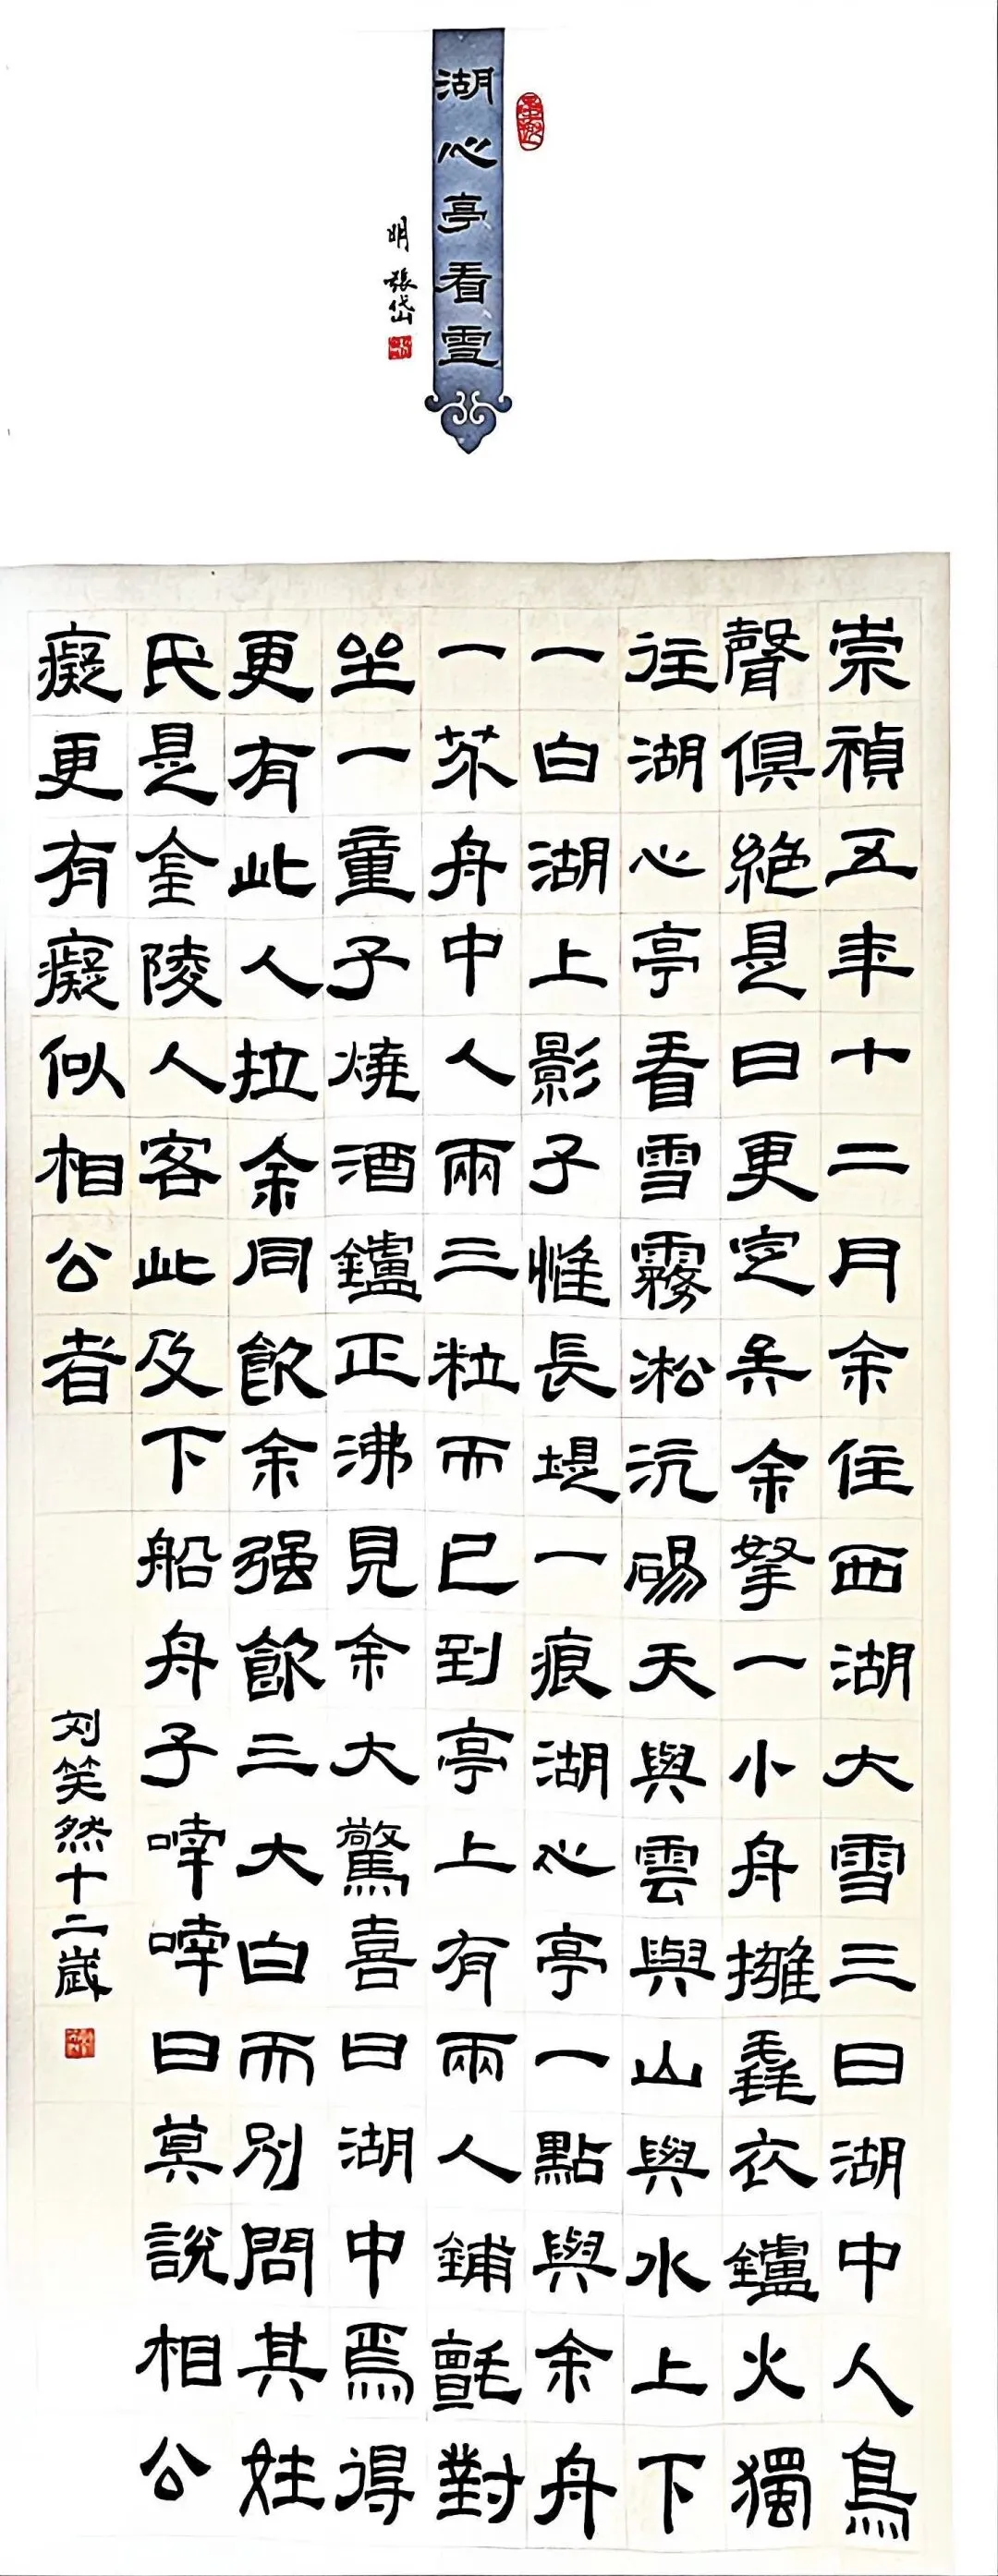 湖心亭看雪
明 張岱
崇禎五年十二月余住西湖大雪三日湖中人鳥
聲俱絕是日更定矣余拏一小舟擁毳衣鑪火獨
往湖心亭看雪霧凇沆碭天與雲與山與水上下
一白湖上影子惟長堤一痕湖心亭一點與余舟
一芥舟中人兩三粒而已到亭上有兩人鋪氈對
坐一童子燒酒鑪正沸見余大驚喜曰湖中焉得
更有此人拉余同飲余强飲三大白而別問其姓
氏是金陵人客此及下船舟子喃喃曰莫說相公
癡更有癡似相公者
刘笑然十二歲